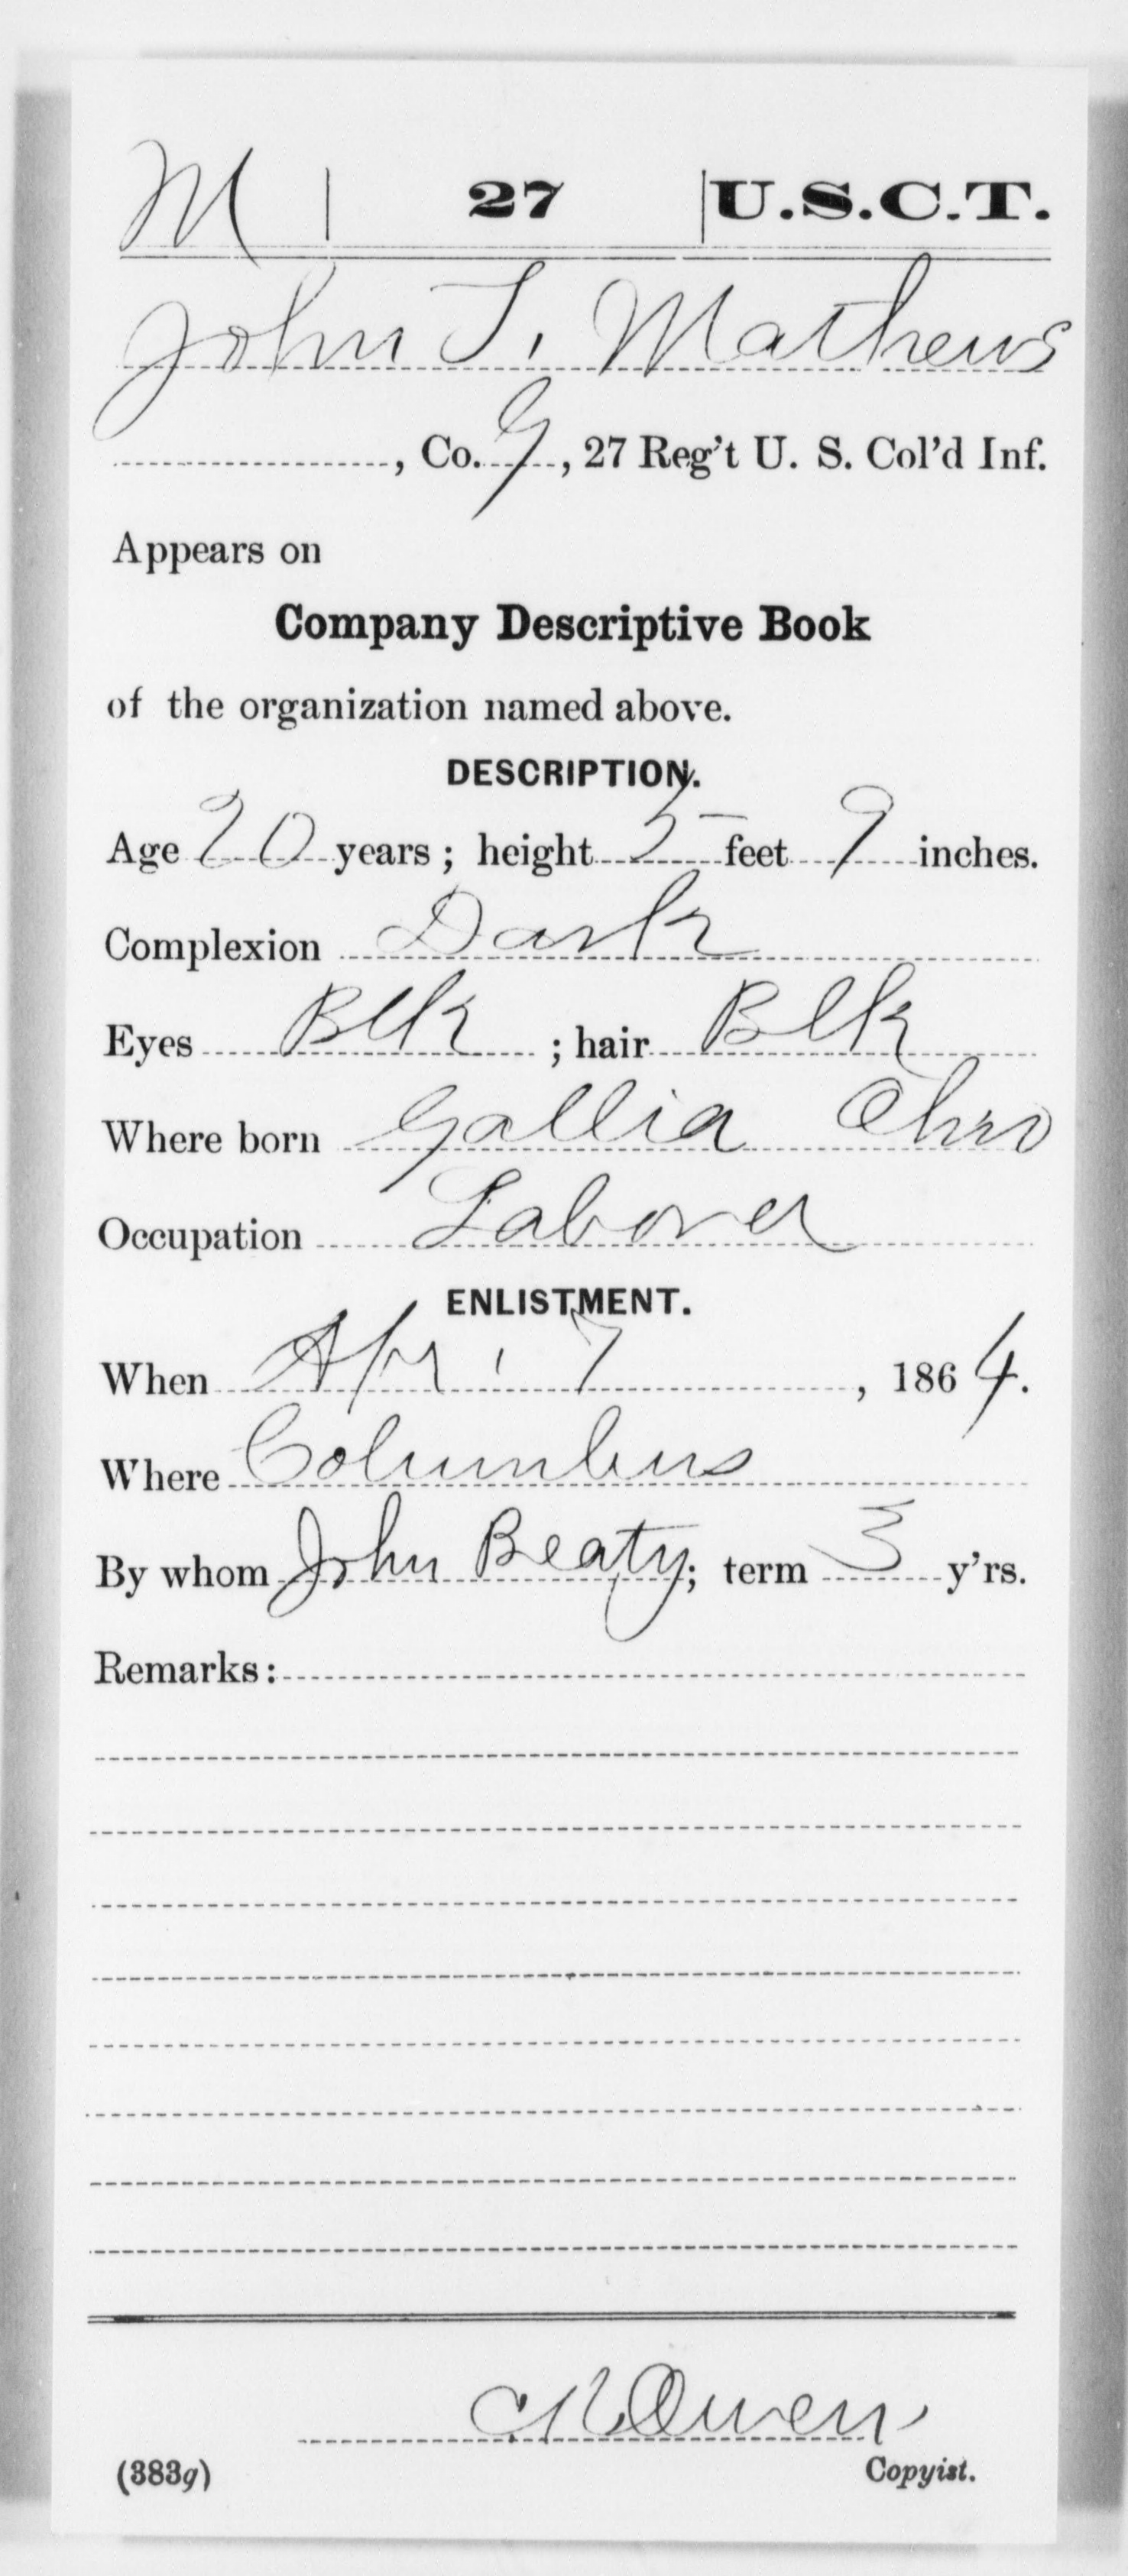 M | 27 | U.S.C.T.
John T. Mathews
, Co. G, 27 Reg't U. S. Col'd Inf.
Appears on
Company Descriptive Book
of the organization named above.
DESCRIPTION.
Age 20 years; height 5 feet 9 inches.
Complexion Dark
Eyes Blk ; hair Blk
Where born Gallia Ohio
Occupation Laborer
ENLISTMENT.
When Apr. 7, 1864.
Where Columbus
By whom John Beaty; term 3 y'rs.
Remarks:
Owen
(383g) Copyist.